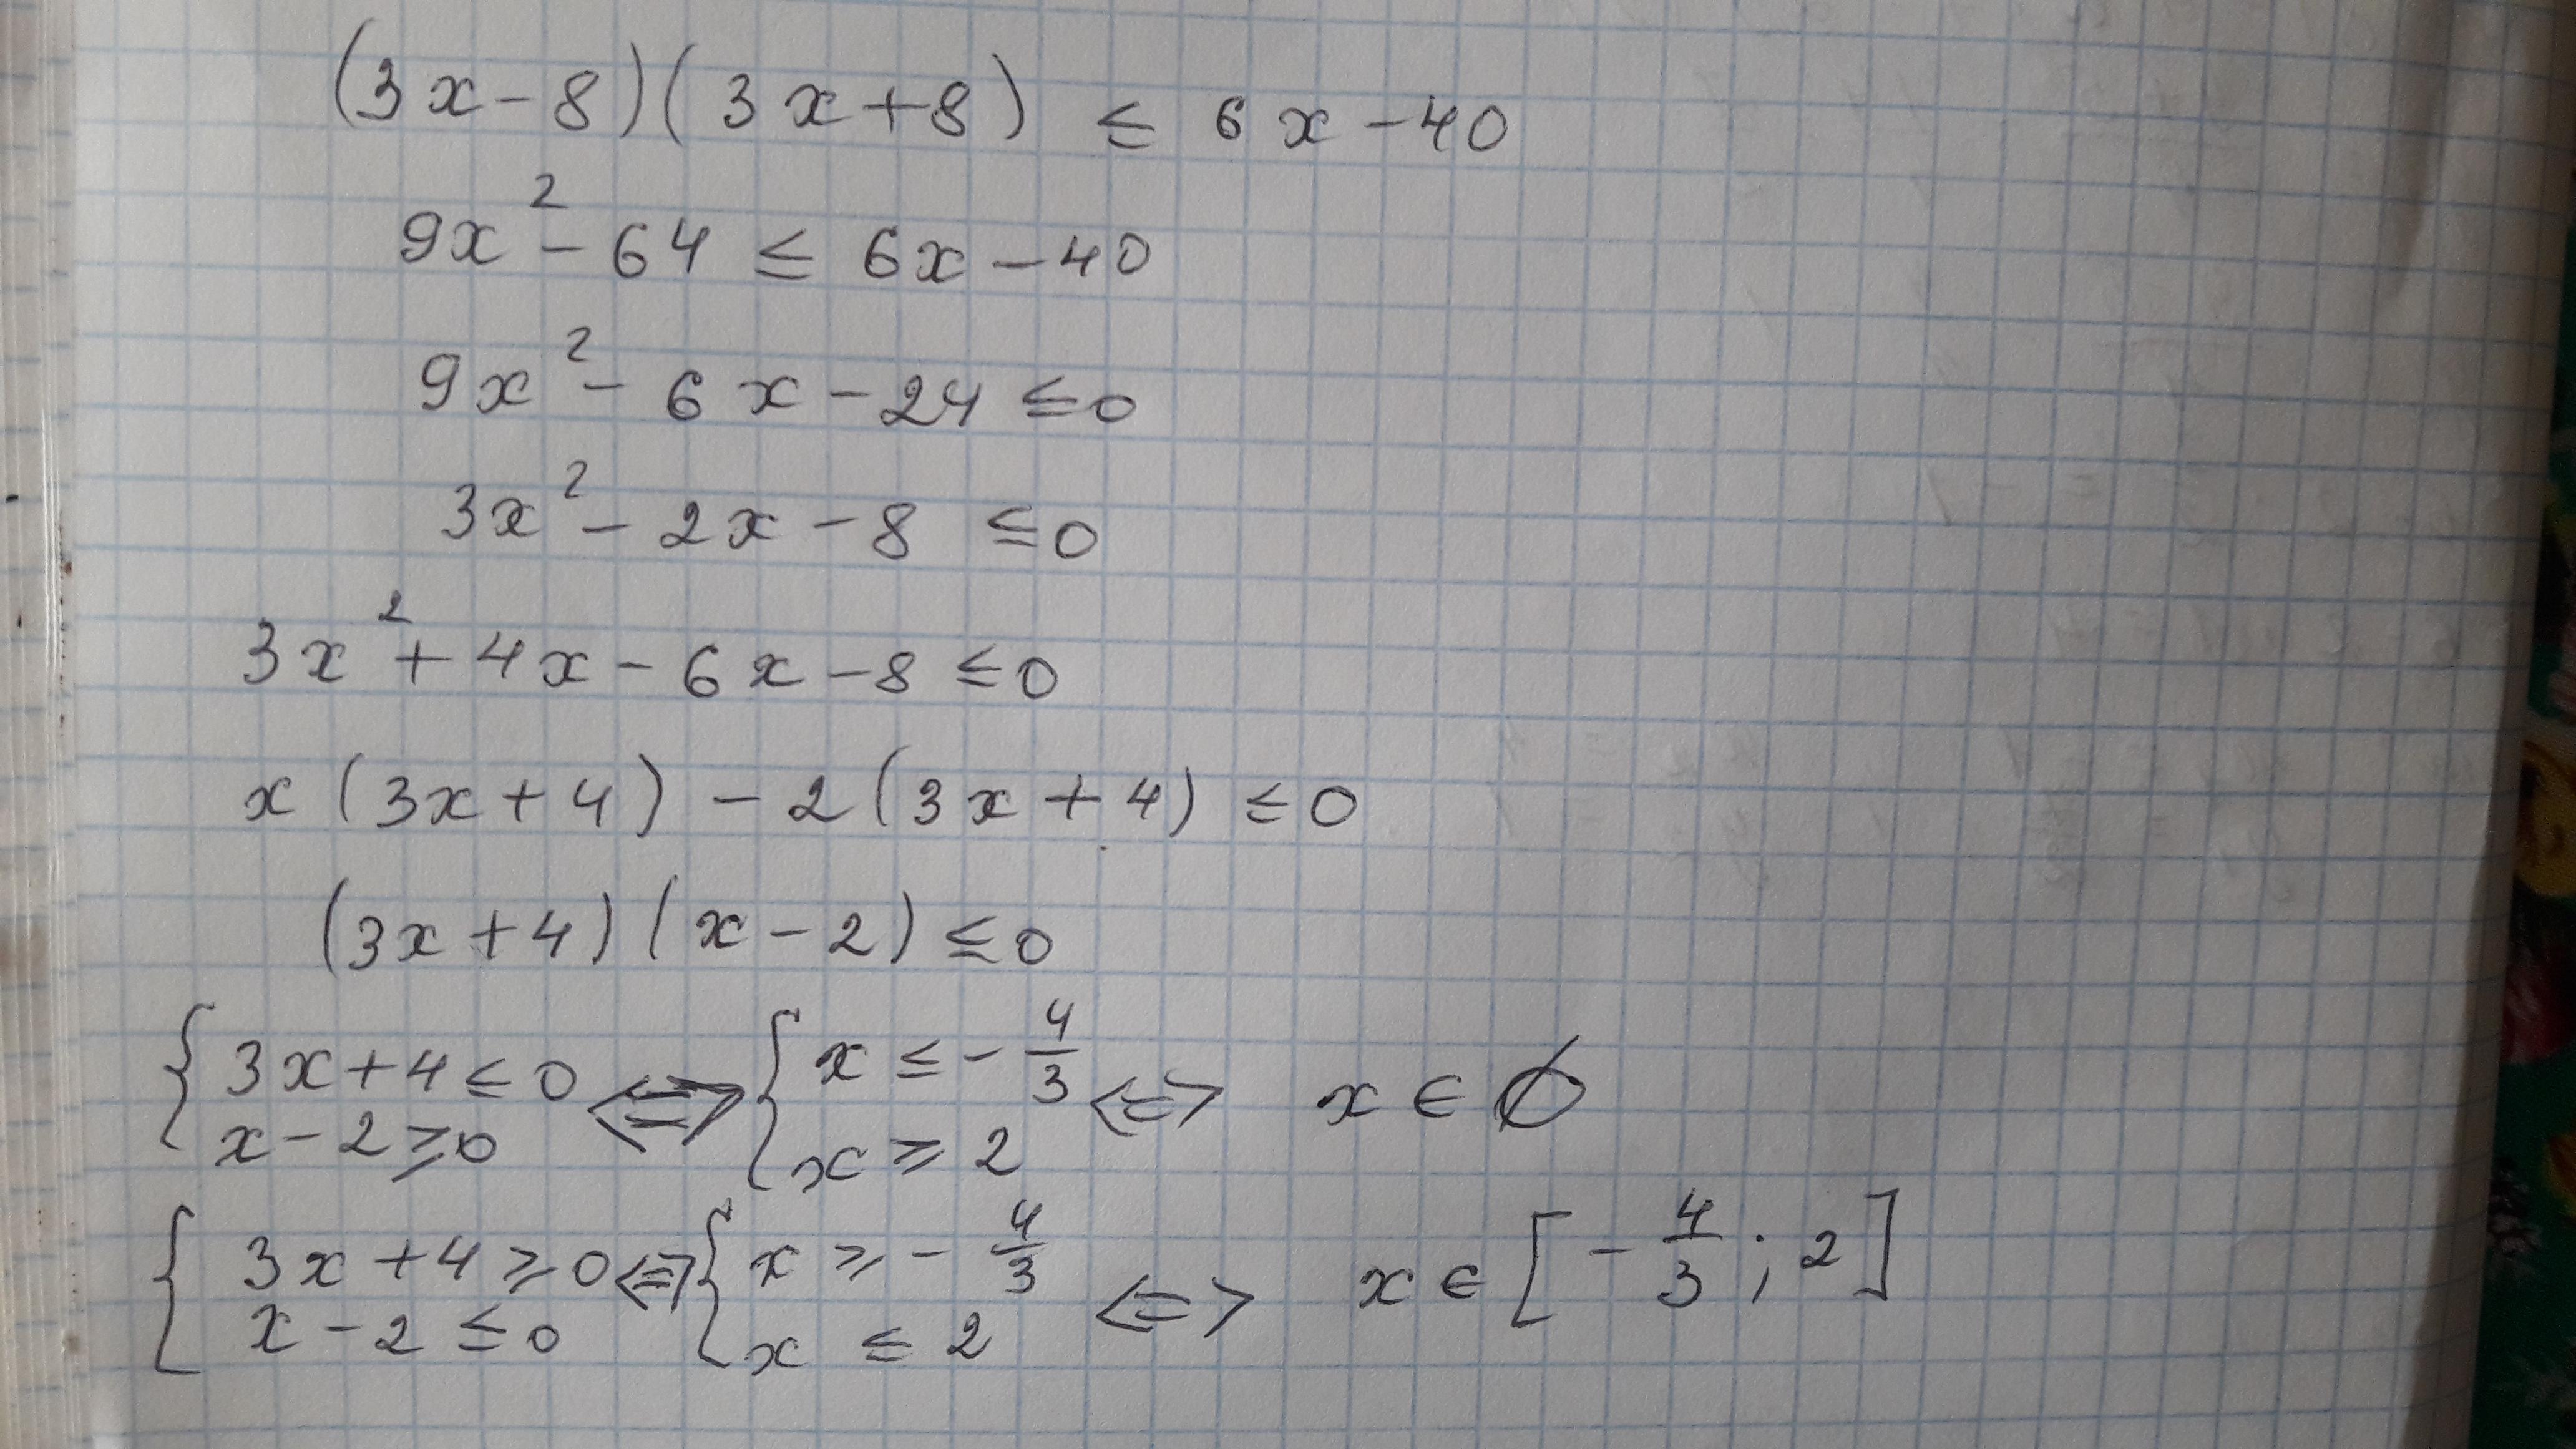 (3x-8)(3x+8) ≤ 6x-40
9x²-64 ≤ 6x-40
9x²-6x-24 ≤0
3x²-2x-8 ≤0
3x²+4x-6x-8 ≤0
x(3x+4)-2(3x+4) ≤0
(3x+4)(x-2) ≤0
{3x+4≤0 x-2≥0 <=> {x≤-4/3 x≥2 <=> x∈∅
{3x+4≥0 x-2≤0 <=> {x≥-4/3 x≤2 <=> x∈[-4/3;2]